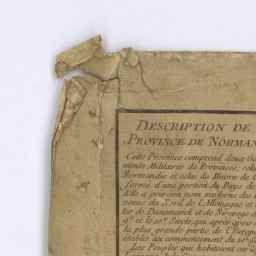 DESCRIPTION DE
PROVINCE DE NORMAN
Cette Province comprend deux
Militaires de Provinces,
Normandie et celui du Havre de
formé d'une portion du Pays de
Elle a pris son nom
venus du Nord de l'Allemagne et
de Danemarck et de Norwege
et le 10.e Siecle, qui après avoir
la plus grande partie de l'Europe
établis au commencement du 10.e
Les Peuples qui habitoient